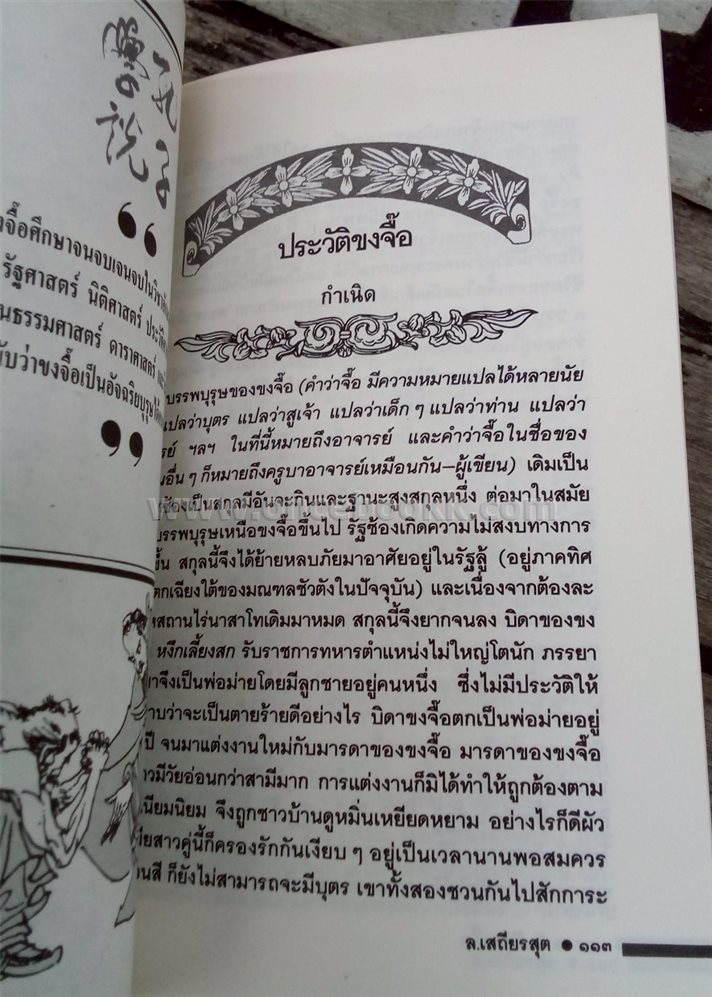 孔子
學說
“
งจื๊อศึกษาจนจบเจนจบในวิชา
รัฐศาสตร์ นิติศาสตร์ ประวัติ
นธรรมศาสตร์ ดาราศาสตร์
ับว่าขงจื๊อเป็นอัจฉริยบุรุษ
”
ประวัติขงจื๊อ
กำเนิด
บรรพบุรุษของขงจื๊อ (คำว่าจื๊อ มีความหมายแปลได้หลายนัย
แปลว่าบุตร แปลว่าสูเจ้า แปลว่าเด็ก ๆ แปลว่าท่าน แปลว่า
รย์ ฯลฯ ในที่นี้หมายถึงอาจารย์ และคำว่าจื๊อในชื่อของ
นอื่น ๆ ก็หมายถึงครูบาอาจารย์เหมือนกัน–ผู้เขียน) เดิมเป็น
ซ้องเป็นสกุลมีอันจะกินและฐานะสูงสกุลหนึ่ง ต่อมาในสมัย
บรรพบุรุษเหนือขงจื๊อขึ้นไป รัฐซ้องเกิดความไม่สงบทางการ
ขึ้น สกุลนี้จึงได้ย้ายหลบภัยมาอาศัยอยู่ในรัฐลู้ (อยู่ภาคทิศ
ตกเฉียงใต้ของมณฑลชัวตังในปัจจุบัน) และเนื่องจากต้องละ
หสถานไร่นาสาโทเดิมมาหมด สกุลนี้จึงยากจนลง บิดาของขง
หงึกเลี้ยงสก รับราชการทหารตำแหน่งไม่ใหญ่โตนัก ภรรยา
าจึงเป็นพ่อม่ายโดยมีลูกชายอยู่คนหนึ่ง ซึ่งไม่มีประวัติให้
าบว่าจะเป็นตายร้ายดีอย่างไร บิดาขงจื๊อตกเป็นพ่อม่ายอยู่
ปี จนมาแต่งงานใหม่กับมารดาของขงจื๊อ มารดาของขงจื๊อ
าวมีวัยอ่อนกว่าสามีมาก การแต่งงานก็มิได้ทำให้ถูกต้องตาม
เนียมนิยม จึงถูกชาวบ้านดูหมิ่นเหยียดหยาม อย่างไรก็ดีผัว
มียสาวคู่นี้ก็ครองรักกันเงียบ ๆ อยู่เป็นเวลานานพอสมควร
นสี ก็ยังไม่สามารถจะมีบุตร เขาทั้งสองชวนกันไปสักการะ
ล.เสถียรสุต ● ๑๑๓